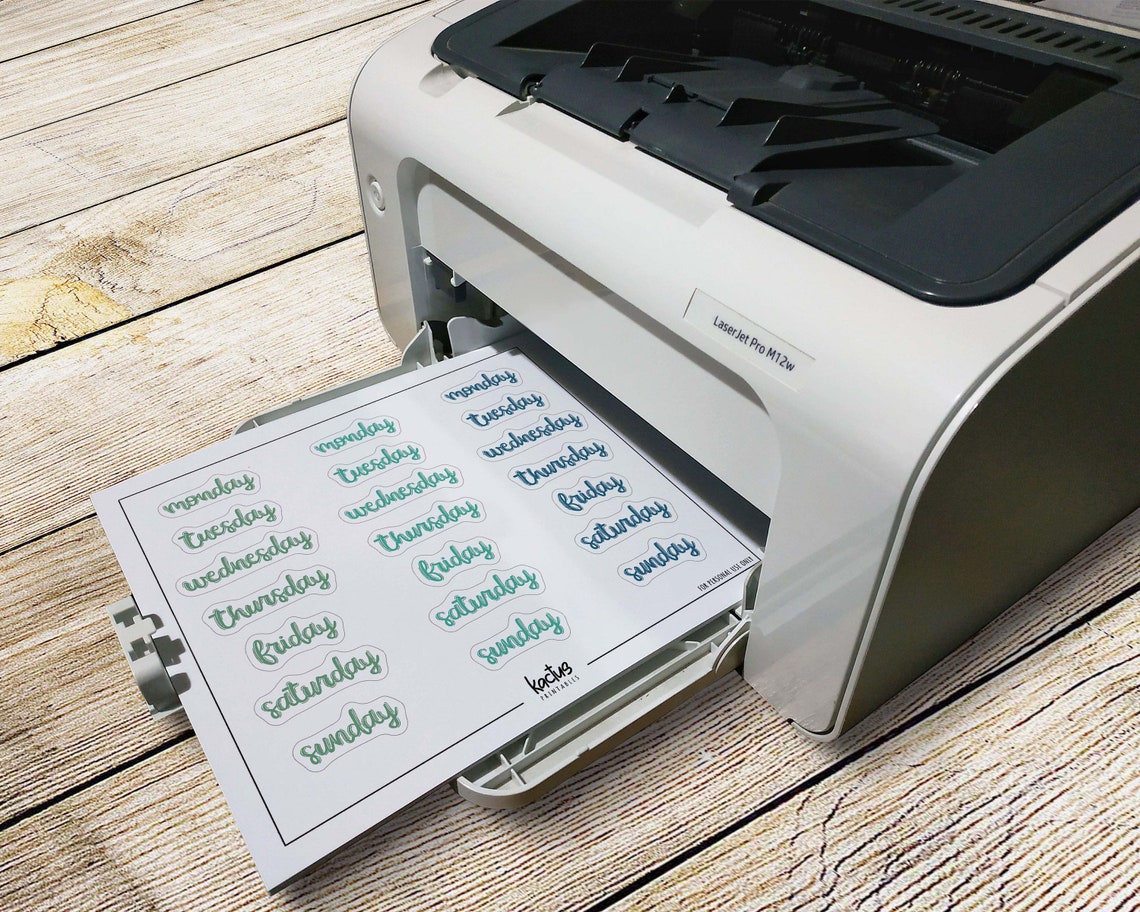 LaserJet Pro M12w
monday
tuesday
wednesday
thursday
friday
saturday
sunday
monday
tuesday
wednesday
thursday
friday
saturday
sunday
monday
tuesday
wednesday
thursday
friday
saturday
sunday
FOR PERSONAL USE ONLY
kactus
PRINTABLES